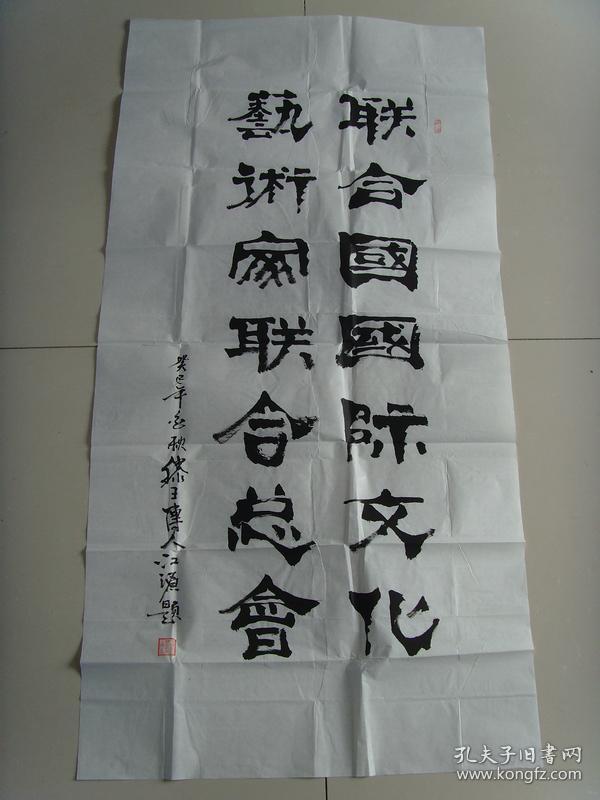 联合國國际文化
藝術家联合总會
癸巳年金秋滕王傳人江源題
孔夫子旧書网
www.kongfz.com